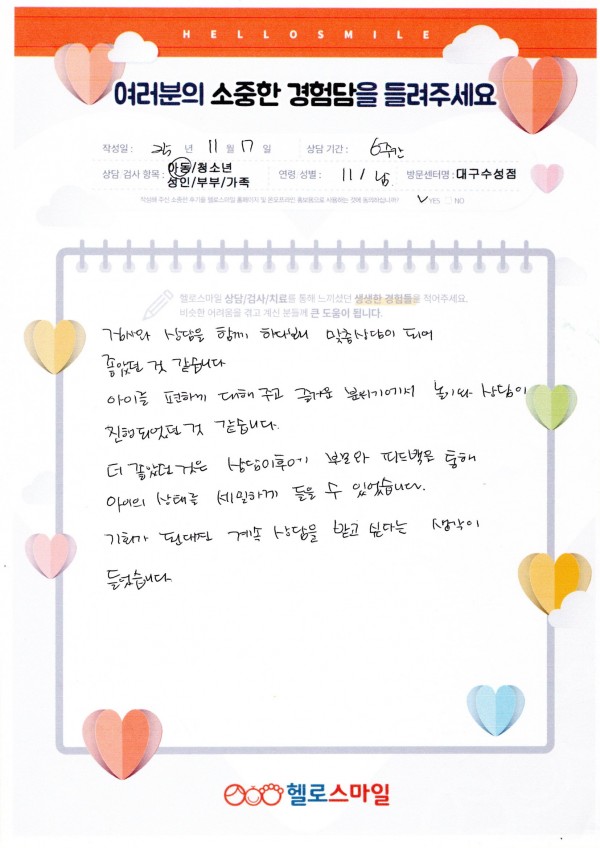 HELLOSMILE
여러분의 소중한 경험담을 들려주세요
작성일 : 25 년 11 월 17 일 상담 기간 : 6주간
상담 검사 항목 : 아동/청소년 성인/부부/가족 연령 성별 : 11 / 남 방문센터명 : 대구수성점
작성해 주신 소중한 후기를 헬로스마일 홈페이지 및 온오프라인 홍보용으로 사용하는 것에 동의하십니까? ✓ YES □ NO
헬로스마일 상담/검사/치료를 통해 느끼셨던 생생한 경험들을 적어주세요.
비슷한 어려움을 겪고 계신 분들께 큰 도움이 됩니다.
검사와 상담을 함께 하다보니 맞춤상담이 되어
좋았던 것 같습니다
아이를 편하게 대해 주고 즐거운 분위기에서 놀이와 상담이
진행되었던 것 같습니다.
더 좋았던 것은 상담이후에 부모와 피드백을 통해
아이의 상태를 세밀하게 들을 수 있었습니다.
기회가 된다면 계속 상담을 받고 싶다는 생각이
들었습니다
헬로스마일